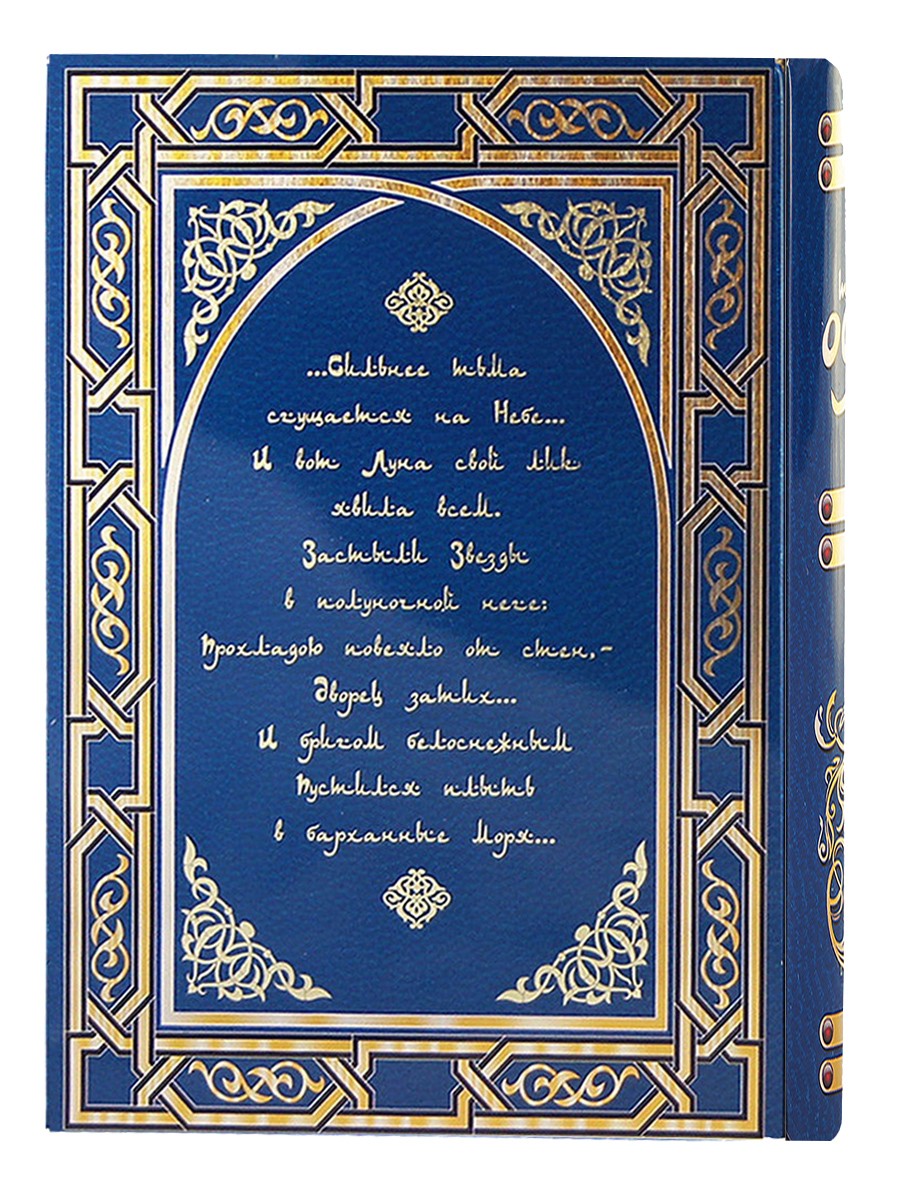 ...Сильнее тьма
сгущается на Небе...
И вот Луна свой лик
явила всем.
Застыли Звезды
в полуночной неге:
Прохладою повеяло от стен,-
Дворец затих...
И бригом белоснежным
Пустился плыть
в барханные Моря...